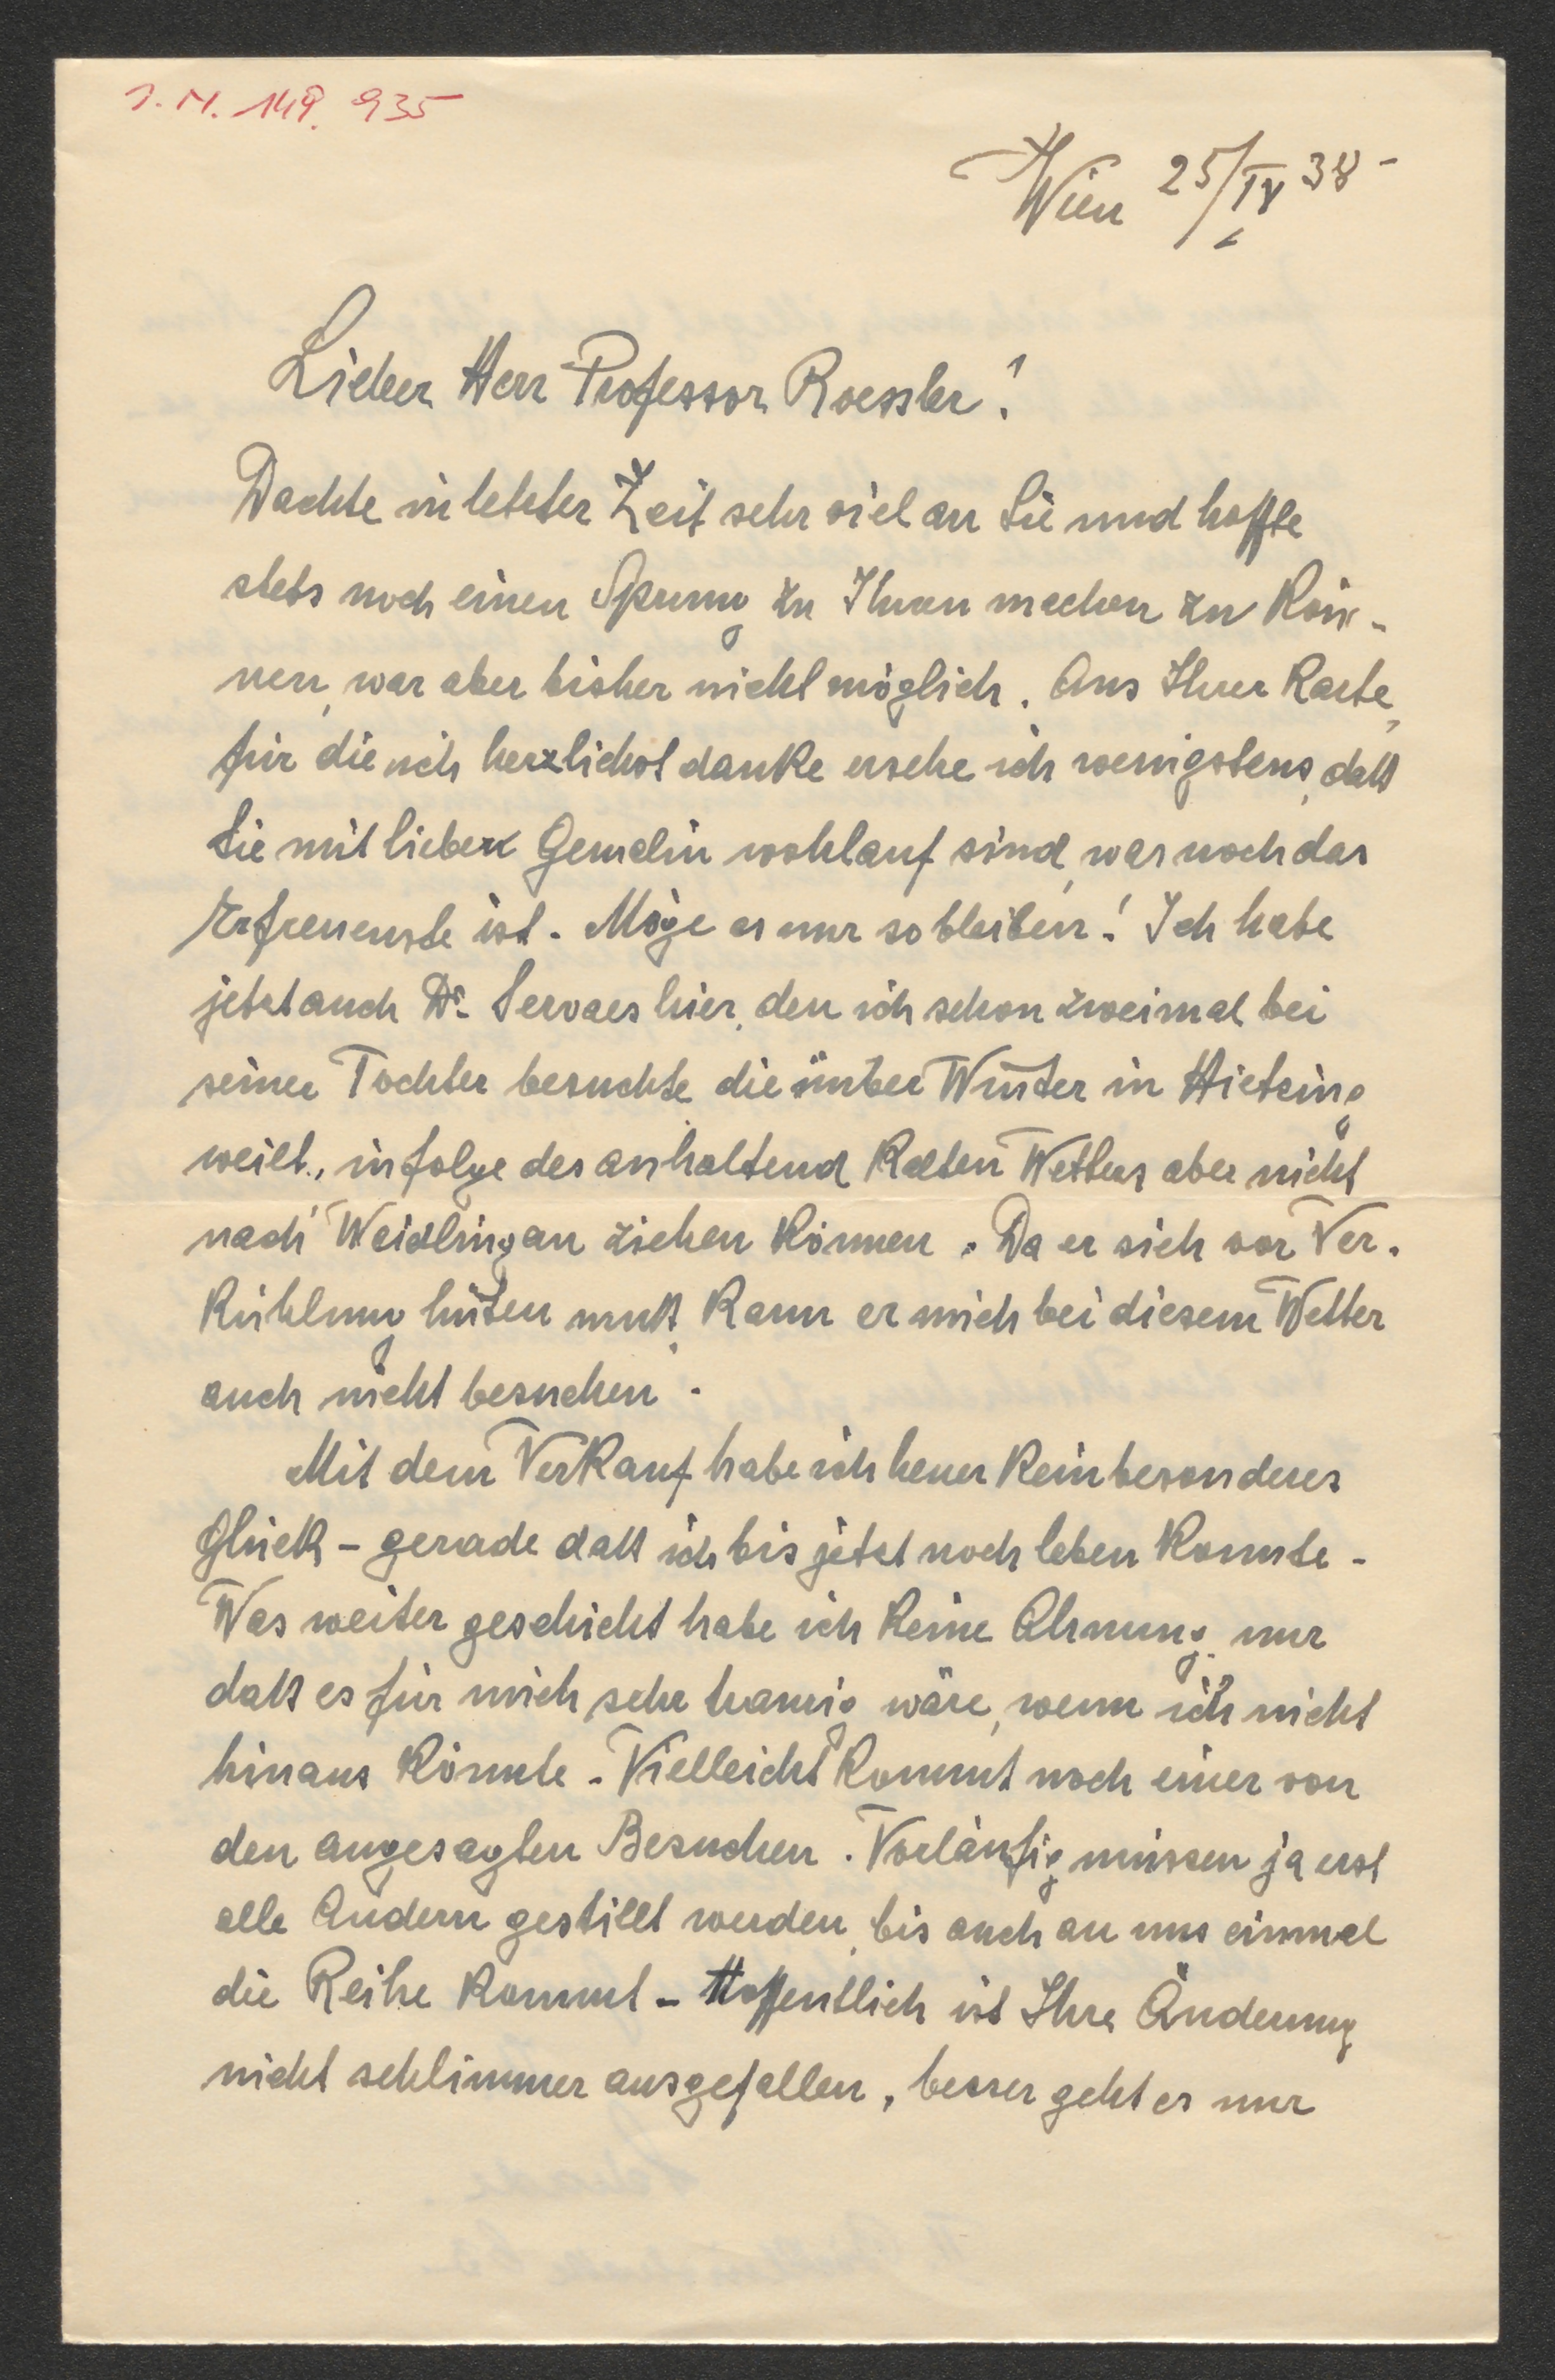 J.N. 149.935
Wien 25/IV 38 -
Lieber Herr Professor Roessler!
Dachte in letzter Zeit sehr viel an Sie und hoffte
stets noch einen Sprung zu Ihnen machen zu kön-
nen, war aber bisher nicht möglich. Aus Ihrer Karte,
für die ich herzlichst danke ersehe ich wenigstens, daß
Sie mit lieber Gemalin wohlauf sind, was noch das
Erfreuenste ist. Möge es nur so bleiben! Ich habe
jetzt auch Dr. Servaes hier, den ich schon zweimal bei
seiner Tochter besuchte die über Winter in Hietzing
weilt, infolge des anhaltend kalten Wetters aber nicht
nach Weidlingau ziehen können. Da er sich vor Ver-
kühlung hüten muß, kann er mich bei diesem Wetter
auch nicht besuchen.
Mit dem Verkauf habe ich heuer kein besonderes
Glück - gerade daß ich bis jetzt noch leben konnte -
Was weiter geschieht habe ich keine Ahnung, nur
daß es für mich sehr traurig wäre, wenn ich nicht
hinaus könnte - Vielleicht kommt noch einer von
den angesagten Besuchen. Vorläufig müssen ja erst
alle Andern gestillt werden, bis auch an uns einmal
die Reihe kommt - Hoffentlich ist Ihre Änderung
nicht schlimmer ausgefallen, besser geht es nur